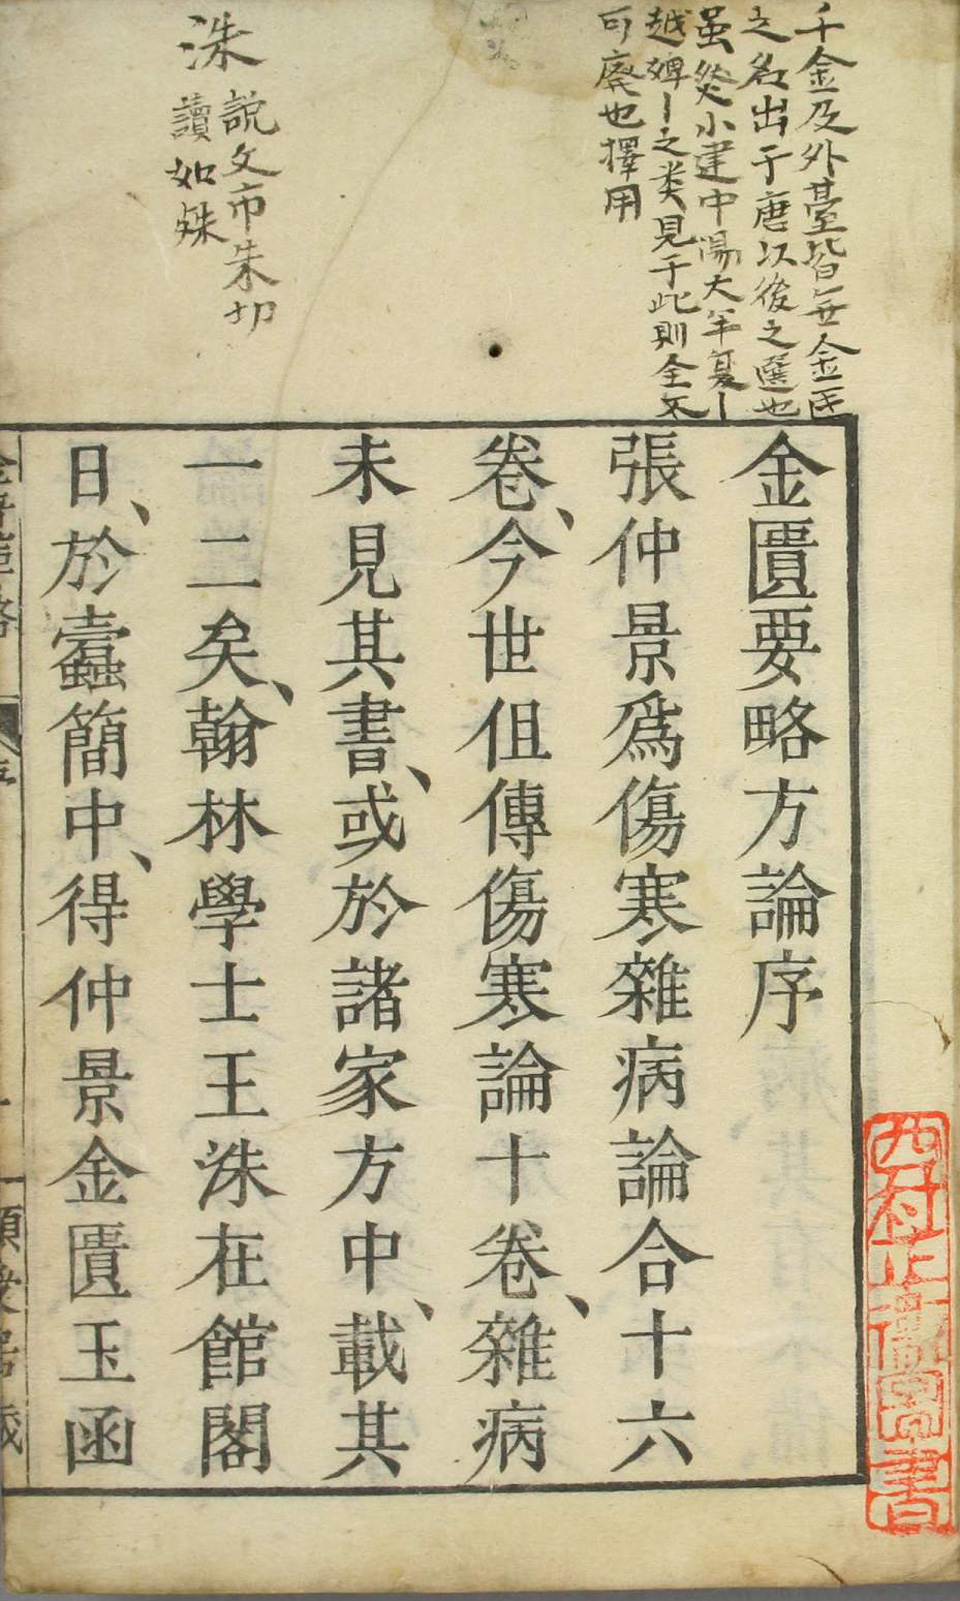 千金及外臺皆無金匱
之名出于唐以後之選也
虽然小建中湯大半夏〡
越婢〡之类見于此則全不
可廢也擇用
洙
說文市朱切
讀如殊
金匱要略方論序
張仲景爲傷寒雜病論合十六
卷、今世但傳傷寒論十卷、雜病
未見其書、或於諸家方中、載其
一二矣、翰林學士王洙在館閣
日、於蠹簡中、得仲景金匱玉函